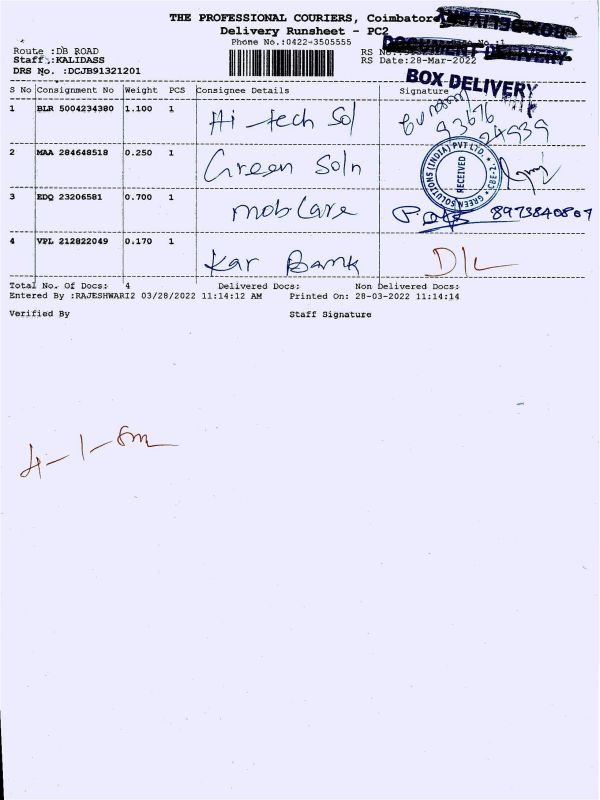 THE PROFESSIONAL COURIERS, Coimbatore
BOX DELIVERY
Delivery Runsheet - PC2
DOCUMENT DELIVERY
Phone No.:0422-3505555
Route :DB ROAD
RS No.:
Staff :KALIDASS
RS Date:28-Mar-2022
DRS No. :DCJB91321201
BOX DELIVERY
S No Consignment No Weight PCS Consignee Details Signature
1 BLR 5004234380 1.100 1 Hi-tech Sol
93676
24939
2 MAA 284648518 0.250 1 Green Soln
GREEN SOLUTIONS (INDIA) PVT LTD. * CBE-2. *
RECEIVED
3 EDQ 23206581 0.700 1 mobCare 8973840807
4 VPL 212822049 0.170 1 Kar Bank D/L
Total No. Of Docs: 4 Delivered Docs: Non Delivered Docs:
Entered By :RAJESHWARI2 03/28/2022 11:14:12 AM Printed On: 28-03-2022 11:14:14
Verified By Staff Signature
4-1-